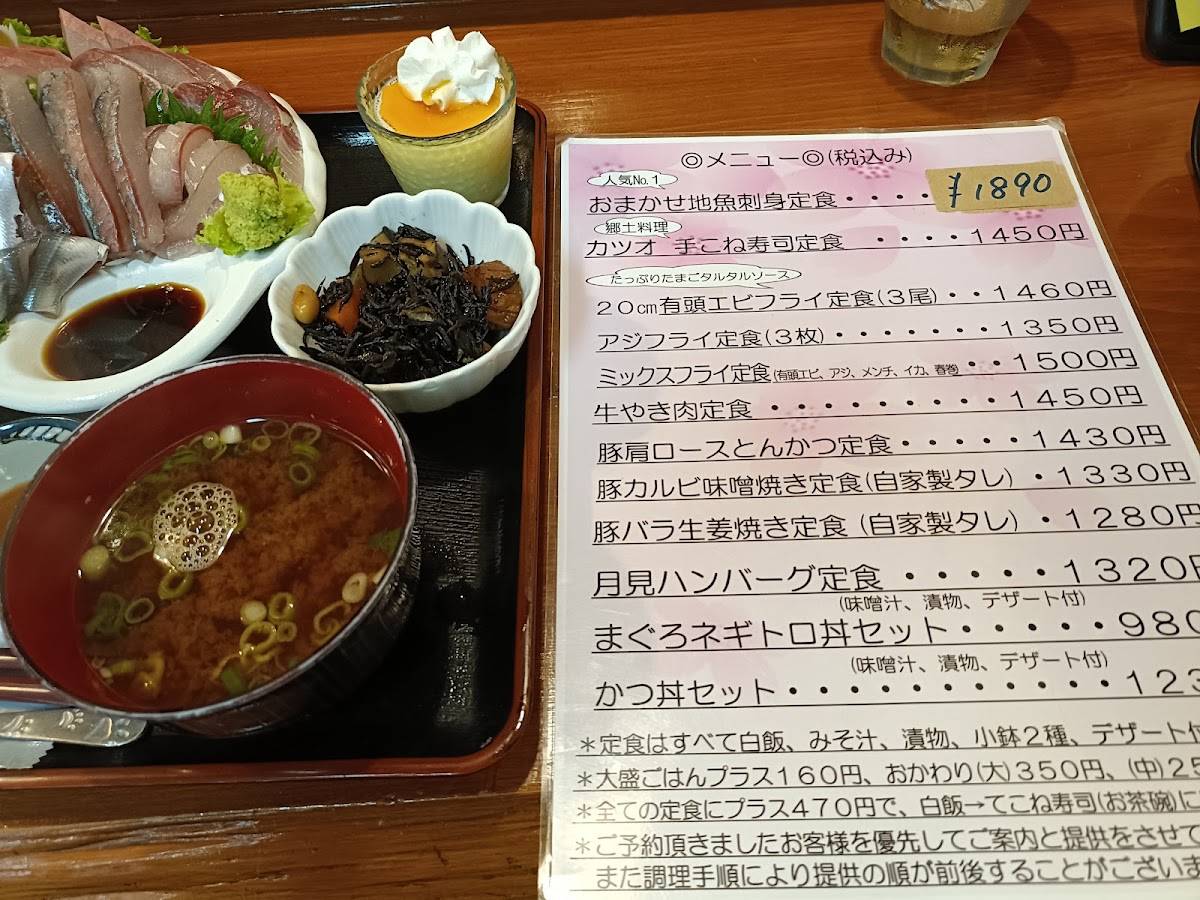 ◎メニュー◎(税込み)
人気No.1
おまかせ地魚刺身定食・・・・ ¥1890
郷土料理
カツオ 手こね寿司定食 ・・・・1450円
たっぷりたまごタルタルソース
20cm有頭エビフライ定食(3尾)・・1460円
アジフライ定食(3枚)・・・・・・・1350円
ミックスフライ定食(有頭エビ、アジ、メンチ、イカ、春巻)・・1500円
牛やき肉定食 ・・・・・・・・・1450円
豚肩ロースとんかつ定食・・・・・1430円
豚カルビ味噌焼き定食(自家製タレ)・1330円
豚バラ生姜焼き定食 (自家製タレ)・1280円
月見ハンバーグ定食 ・・・・・1320円
(味噌汁、漬物、デザート付)
まぐろネギトロ丼セット・・・・・980
(味噌汁、漬物、デザート付)
かつ丼セット・・・・・・・・・・・・123
*定食はすべて白飯、みそ汁、漬物、小鉢2種、デザート付
*大盛ごはんプラス160円、おかわり(大)350円、(中)25
*全ての定食にプラス470円で、白飯→てこね寿司(お茶碗)に
*ご予約頂きましたお客様を優先してご案内と提供をさせて
また調理手順により提供の順が前後することがございま